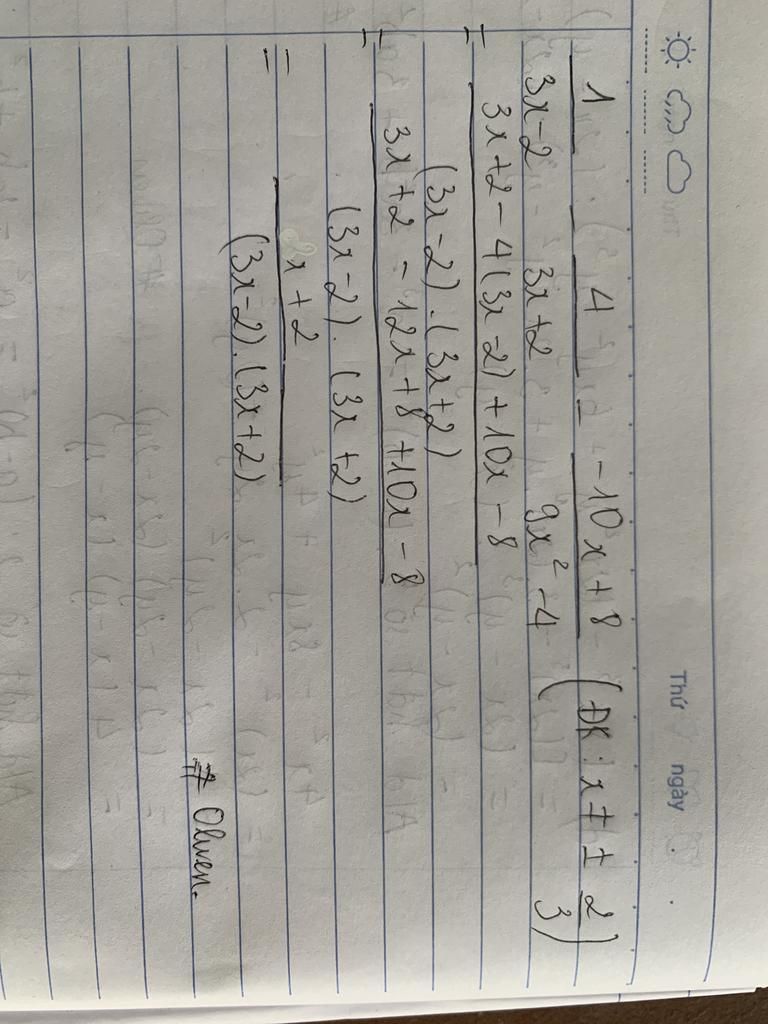 Thứ ngày
1/(3x-2) - 4/(3x+2) - (-10x+8)/(9x²-4) (ĐK: x ≠ ± 2/3)
= (3x+2-4(3x-2)+10x-8)/((3x-2).(3x+2))
= (3x+2-12x+8+10x-8)/((3x-2).(3x+2))
= = x+2/((3x-2).(3x+2))